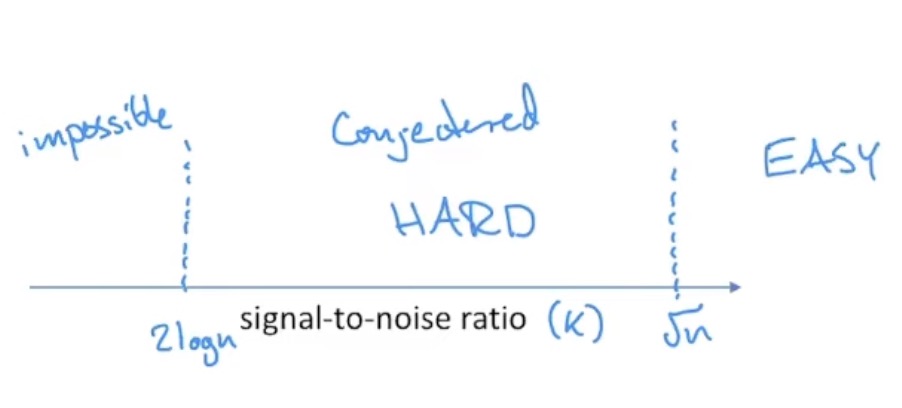 impossible
Conjectured
HARD
EASY
2logn signal-to-noise ratio (K) √n